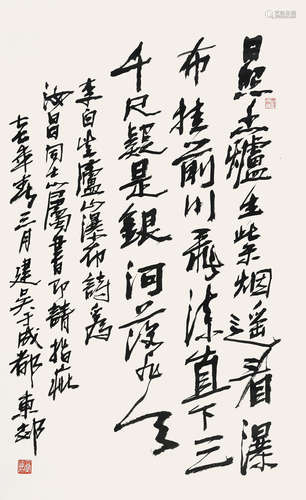 日照香爐生紫烟遥看瀑
布挂前川飛流直下三
千尺疑是銀河落九天
李白望廬山瀑布詩爲
汝昌同志屬書即請指疵
年春三月建吴于成都東郊